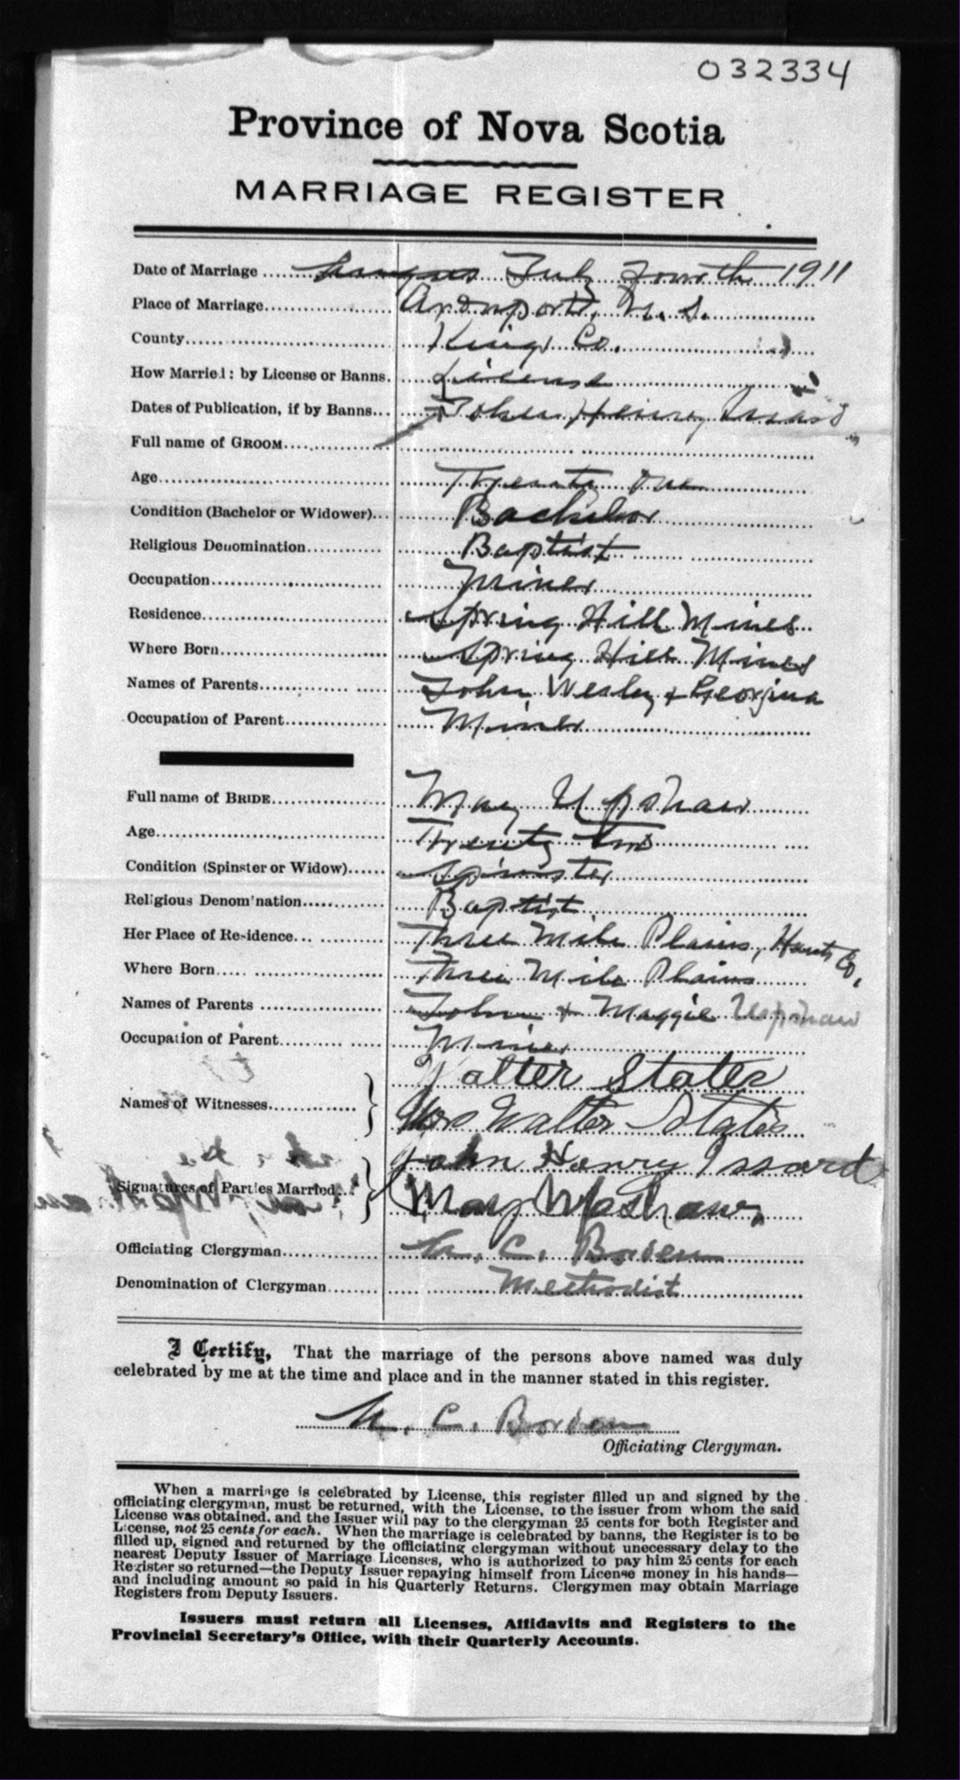 032334
Province of Nova Scotia
MARRIAGE REGISTER
Date of Marriage ...... July Fourth 1911
Place of Marriage...... Avonport, N. S.
County...... Kings Co.
How Married: by License or Banns. License
Dates of Publication, if by Banns... John Henry
Full name of GROOM......
Age...... Twenty One
Condition (Bachelor or Widower)... Bachelor
Religious Denomination...... Baptist
Occupation...... Miner
Residence...... Spring Hill Mines
Where Born...... Spring Hill Mines
Names of Parents...... John Wesley & Georgina
Occupation of Parent...... Miner
Full name of BRIDE...... May Upshaw
Age...... Twenty Two
Condition (Spinster or Widow)...... Spinster
Religious Denomination...... Baptist
Her Place of Residence... Three Mile Plains, Hants Co,
Where Born...... Three Mile Plains
Names of Parents ...... John & Maggie Upshaw
Occupation of Parent...... Miner
Walter States
Names of Witnesses......
Mrs Walter States
John Henry Issard
Signatures of Parties Married...
May Upshaw,
Officiating Clergyman...... C. Borden
Denomination of Clergyman...... Methodist
I Certify, That the marriage of the persons above named was duly
celebrated by me at the time and place and in the manner stated in this register.
C. Borden
Officiating Clergyman.
When a marriage is celebrated by License, this register filled up and signed by the
officiating clergyman, must be returned, with the License, to the issuer from whom the said
License was obtained, and the Issuer will pay to the clergyman 25 cents for both Register and
License, not 25 cents for each. When the marriage is celebrated by banns, the Register is to be
filled up, signed and returned by the officiating clergyman without unnecessary delay to the
nearest Deputy Issuer of Marriage Licenses, who is authorized to pay him 25 cents for each
Register so returned—the Deputy Issuer repaying himself from License money in his hands—
and including amount so paid in his Quarterly Returns. Clergymen may obtain Marriage
Registers from Deputy Issuers.
Issuers must return all Licenses, Affidavits and Registers to the
Provincial Secretary's Office, with their Quarterly Accounts.